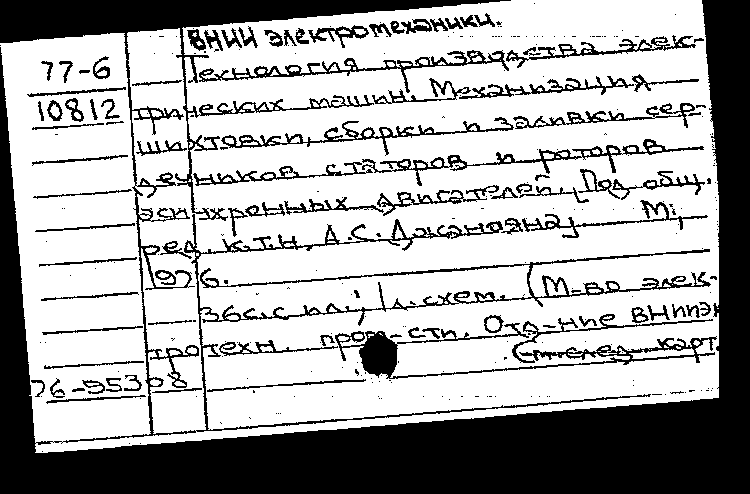 ВНИИ электромеханики.
77-6
Технология производства элек-
10812
трических машин. Механизация
шихтовки, сборки и заливки сер-
дечников статоров и роторов
асинхронных двигателей. [Под общ.
ред. к.т.н. А.С. Джанояна]. М.,
1976.
36с. с ил.; 1 л. схем. (М-во элек-
тротехн. пром-сти. Отд-ние ВНИИЭ
См. след. карт.
76-95308